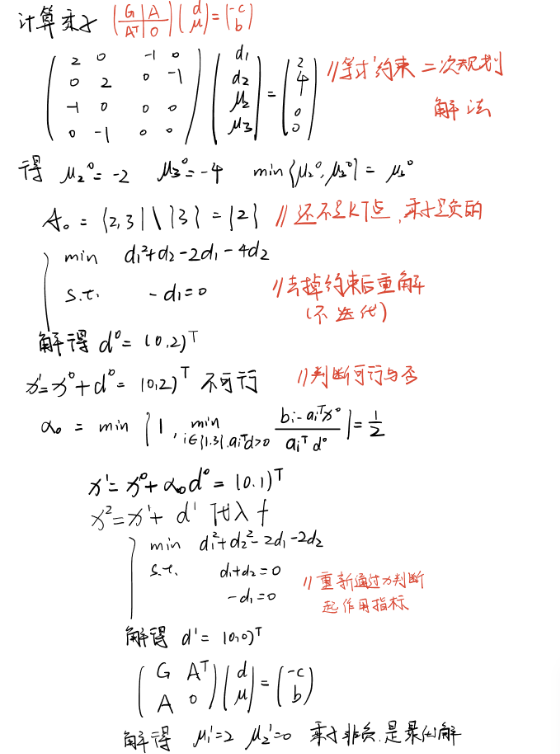 计算乘子 (G A / Aᵀ 0)(d / μ)=(-c / b)
2 0 -1 0 d₁ 2 //等式约束 二次规划
0 2 0 -1 d₂ = 4 解法
-1 0 0 0 μ₂ 0
0 -1 0 0 μ₃ 0
得 μ₂⁰=-2 μ₃⁰=-4 min{μ₂⁰,μ₃⁰}=μ₃⁰
A₀={2,3}\{3}={2} //还不是KT点,乘子是负的
min d₁²+d₂-2d₁-4d₂
s.t. -d₁=0 //去掉约束后重解
(不迭代)
解得 d⁰=(0,2)ᵀ
x¹=x⁰+d⁰=(0,2)ᵀ 不可行 //判断可行与否
α₀ = min {1, min i∈{1,3},aᵢᵀd>0 (bᵢ-aᵢᵀx⁰)/(aᵢᵀd⁰)}=1/2
x¹=x⁰+α₀d⁰=(0,1)ᵀ
x²=x¹+d¹ 代入f
min d₁²+d₂²-2d₁-2d₂
s.t. d₁+d₂=0
-d₁=0 //重新通过x¹判断
起作用指标
解得 d¹=(0,0)ᵀ
(G Aᵀ / A 0)(d / μ)=(-c / b)
解得 μ₁¹=2 μ₂¹=0 乘子非负,是最优解